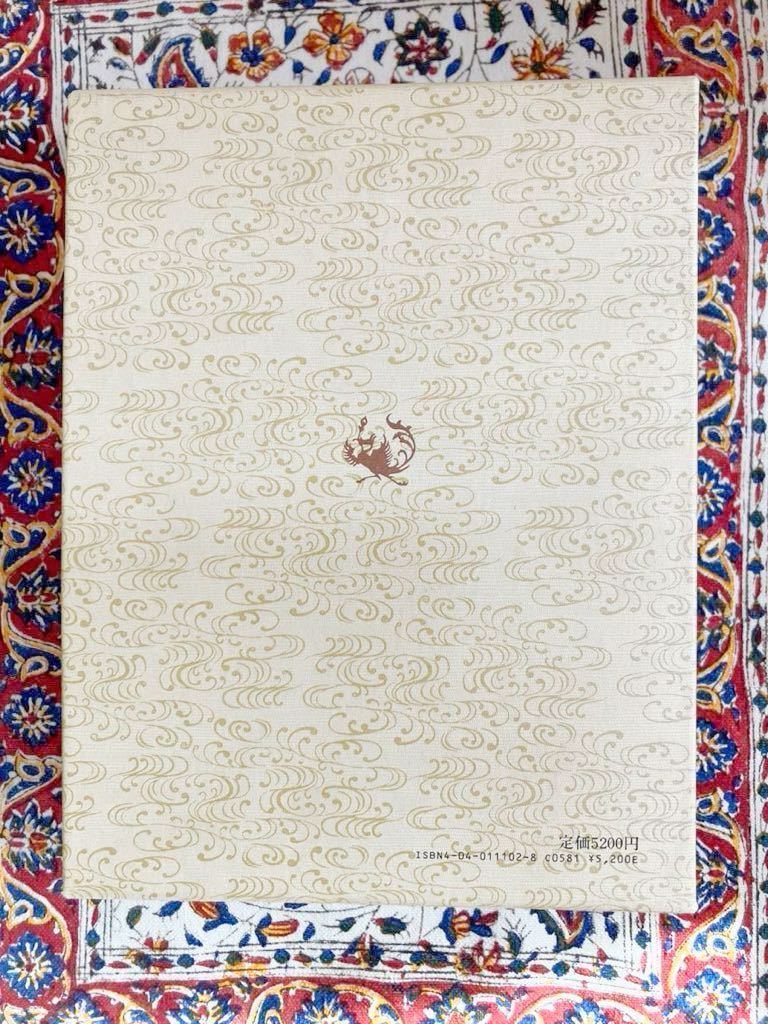 定価5200円
ISBN4-04-011102-8 C0581 ¥5,200E